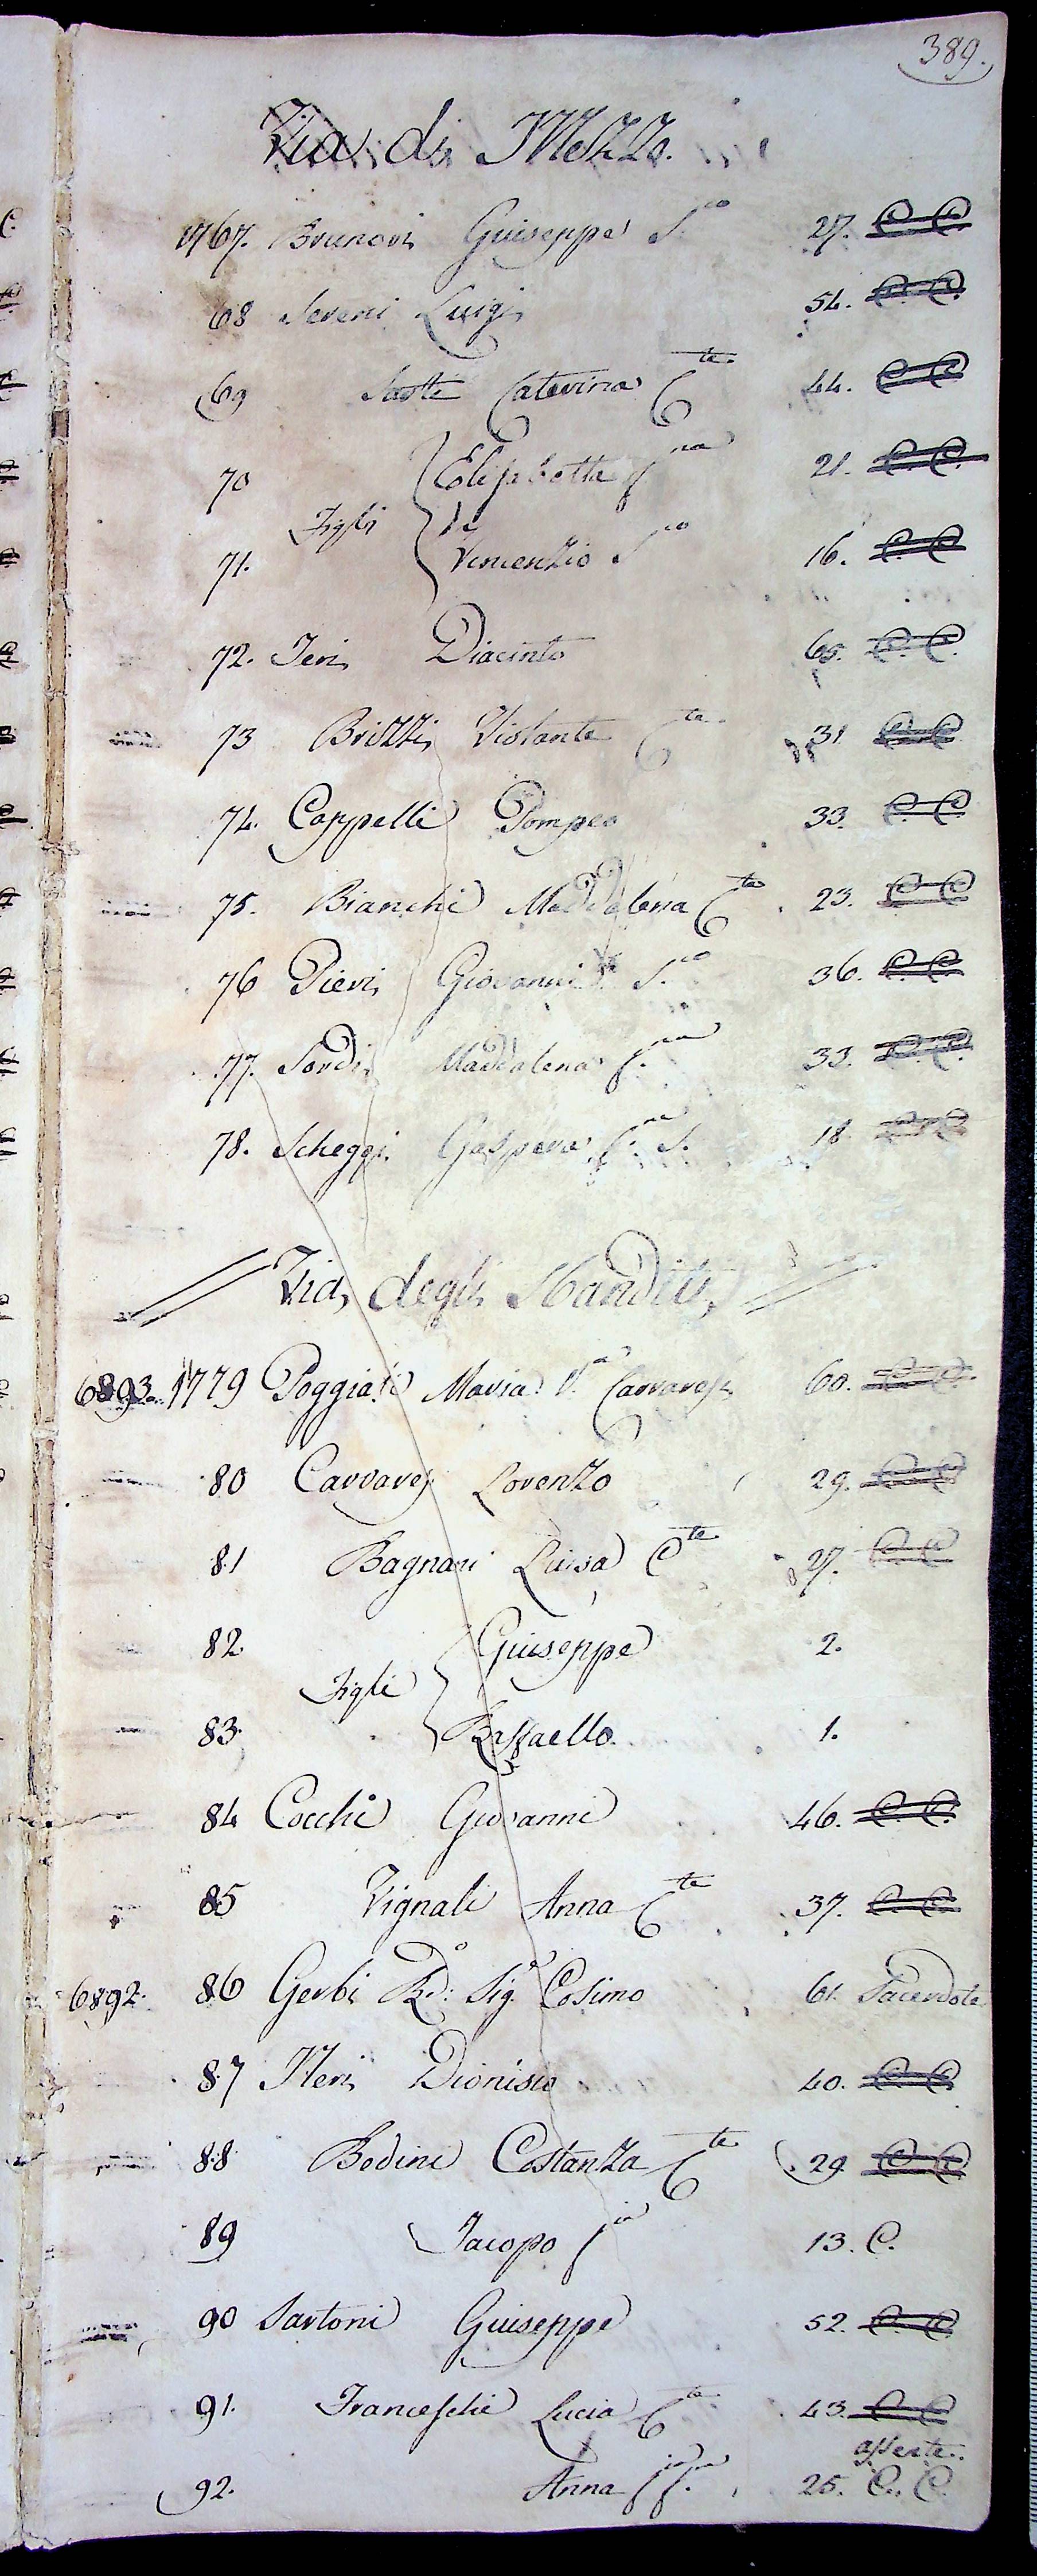 389.
Via di Mezzo.
1767. Brunori Giuseppe S.co 27. C. C.
68 Severi Luigi 54. C. C.
69 Caterina Cte 44. C. C.
70 Elisabetta fna 21. C. C.
Figli
71. Vincenzio S.co 16. C. C.
72. Neri Diacinto 65. C. C.
73 Brizzi Violante Cte 31 C. C.
74. Cappelli Pompeo 33. C. C.
75. Bianchi Maddalena Cte 23. C. C.
76 Pieri Giovanni S.co 36. C. C.
77. Sordi Maddalena f.na 33. C. C.
78. Scheggi Gaspera f.na S. 18. C. C.
Via degli Sbanditi
6893. 1779 Poggiali Maria Va Carraresi 60. C. C.
80 Carraresi Lorenzo 29. C. C.
81 Bagnani Luisa Cte 27. C. C.
82. Giuseppe 2.
Figli
83. Raffaello. 1.
84 Cocchi Giovanni 46. C. C.
85 Vignali Anna Cte 37. C. C.
6892. 86 Gerbi Rdo: Sigr Cosimo 61. Sacerdote
87 Neri Dionisio 40. C. C.
88 Bodini Costanza Cte 29 C. C.
89 Jacopo fio 13. C.
90 Sartoni Giuseppe 52. C. C.
91. Franceschi Lucia Cte 43. C. C.
assente.
92. Anna 25. C. C.